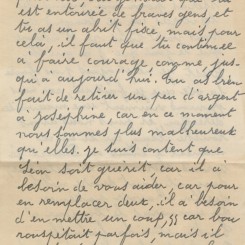 est entourée de braves gens, et
tu as un abri fixe, mais pour
cela, il faut que tu continue
à faire courage, comme jus-
qu'à aujourd'hui. Tu as bien
fait de retirer un peu d'argent
à Joséphine, car en ce moment
nous sommes plus malheureux
qu'elles. Je suis content que
Léon soit guérit, car il a
besoin de vous aider, car pour
en remplacer deux, il a besoin
d'en mettre un coup, car bou
rouspétait parfois, mais il